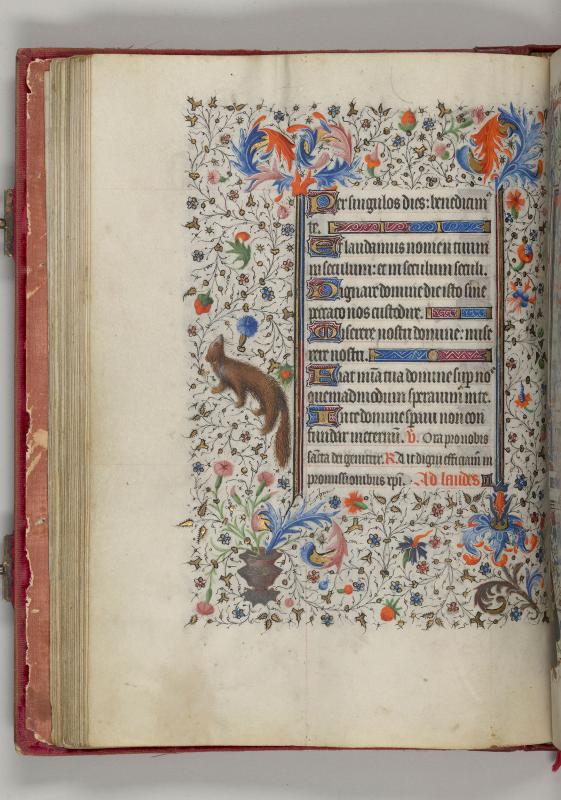 Per singulos dies: benedicim̄
te.
Et laudamus nomen tuum
in seculum: et in seculum seculi.
Dignare domine die isto sine
peccato nos custodire.
Miserere nostri domine: mise
rere nostri.
Fiat mīa tua domine sup no
quemadmodum sperauim in te.
In te domine speraui non con
fundar in eternū. V̄. Ora pro nobis
sācta dei genitrix. R Ut digni efficiam̄ in
promissionibus xp̄i. Ad laudes